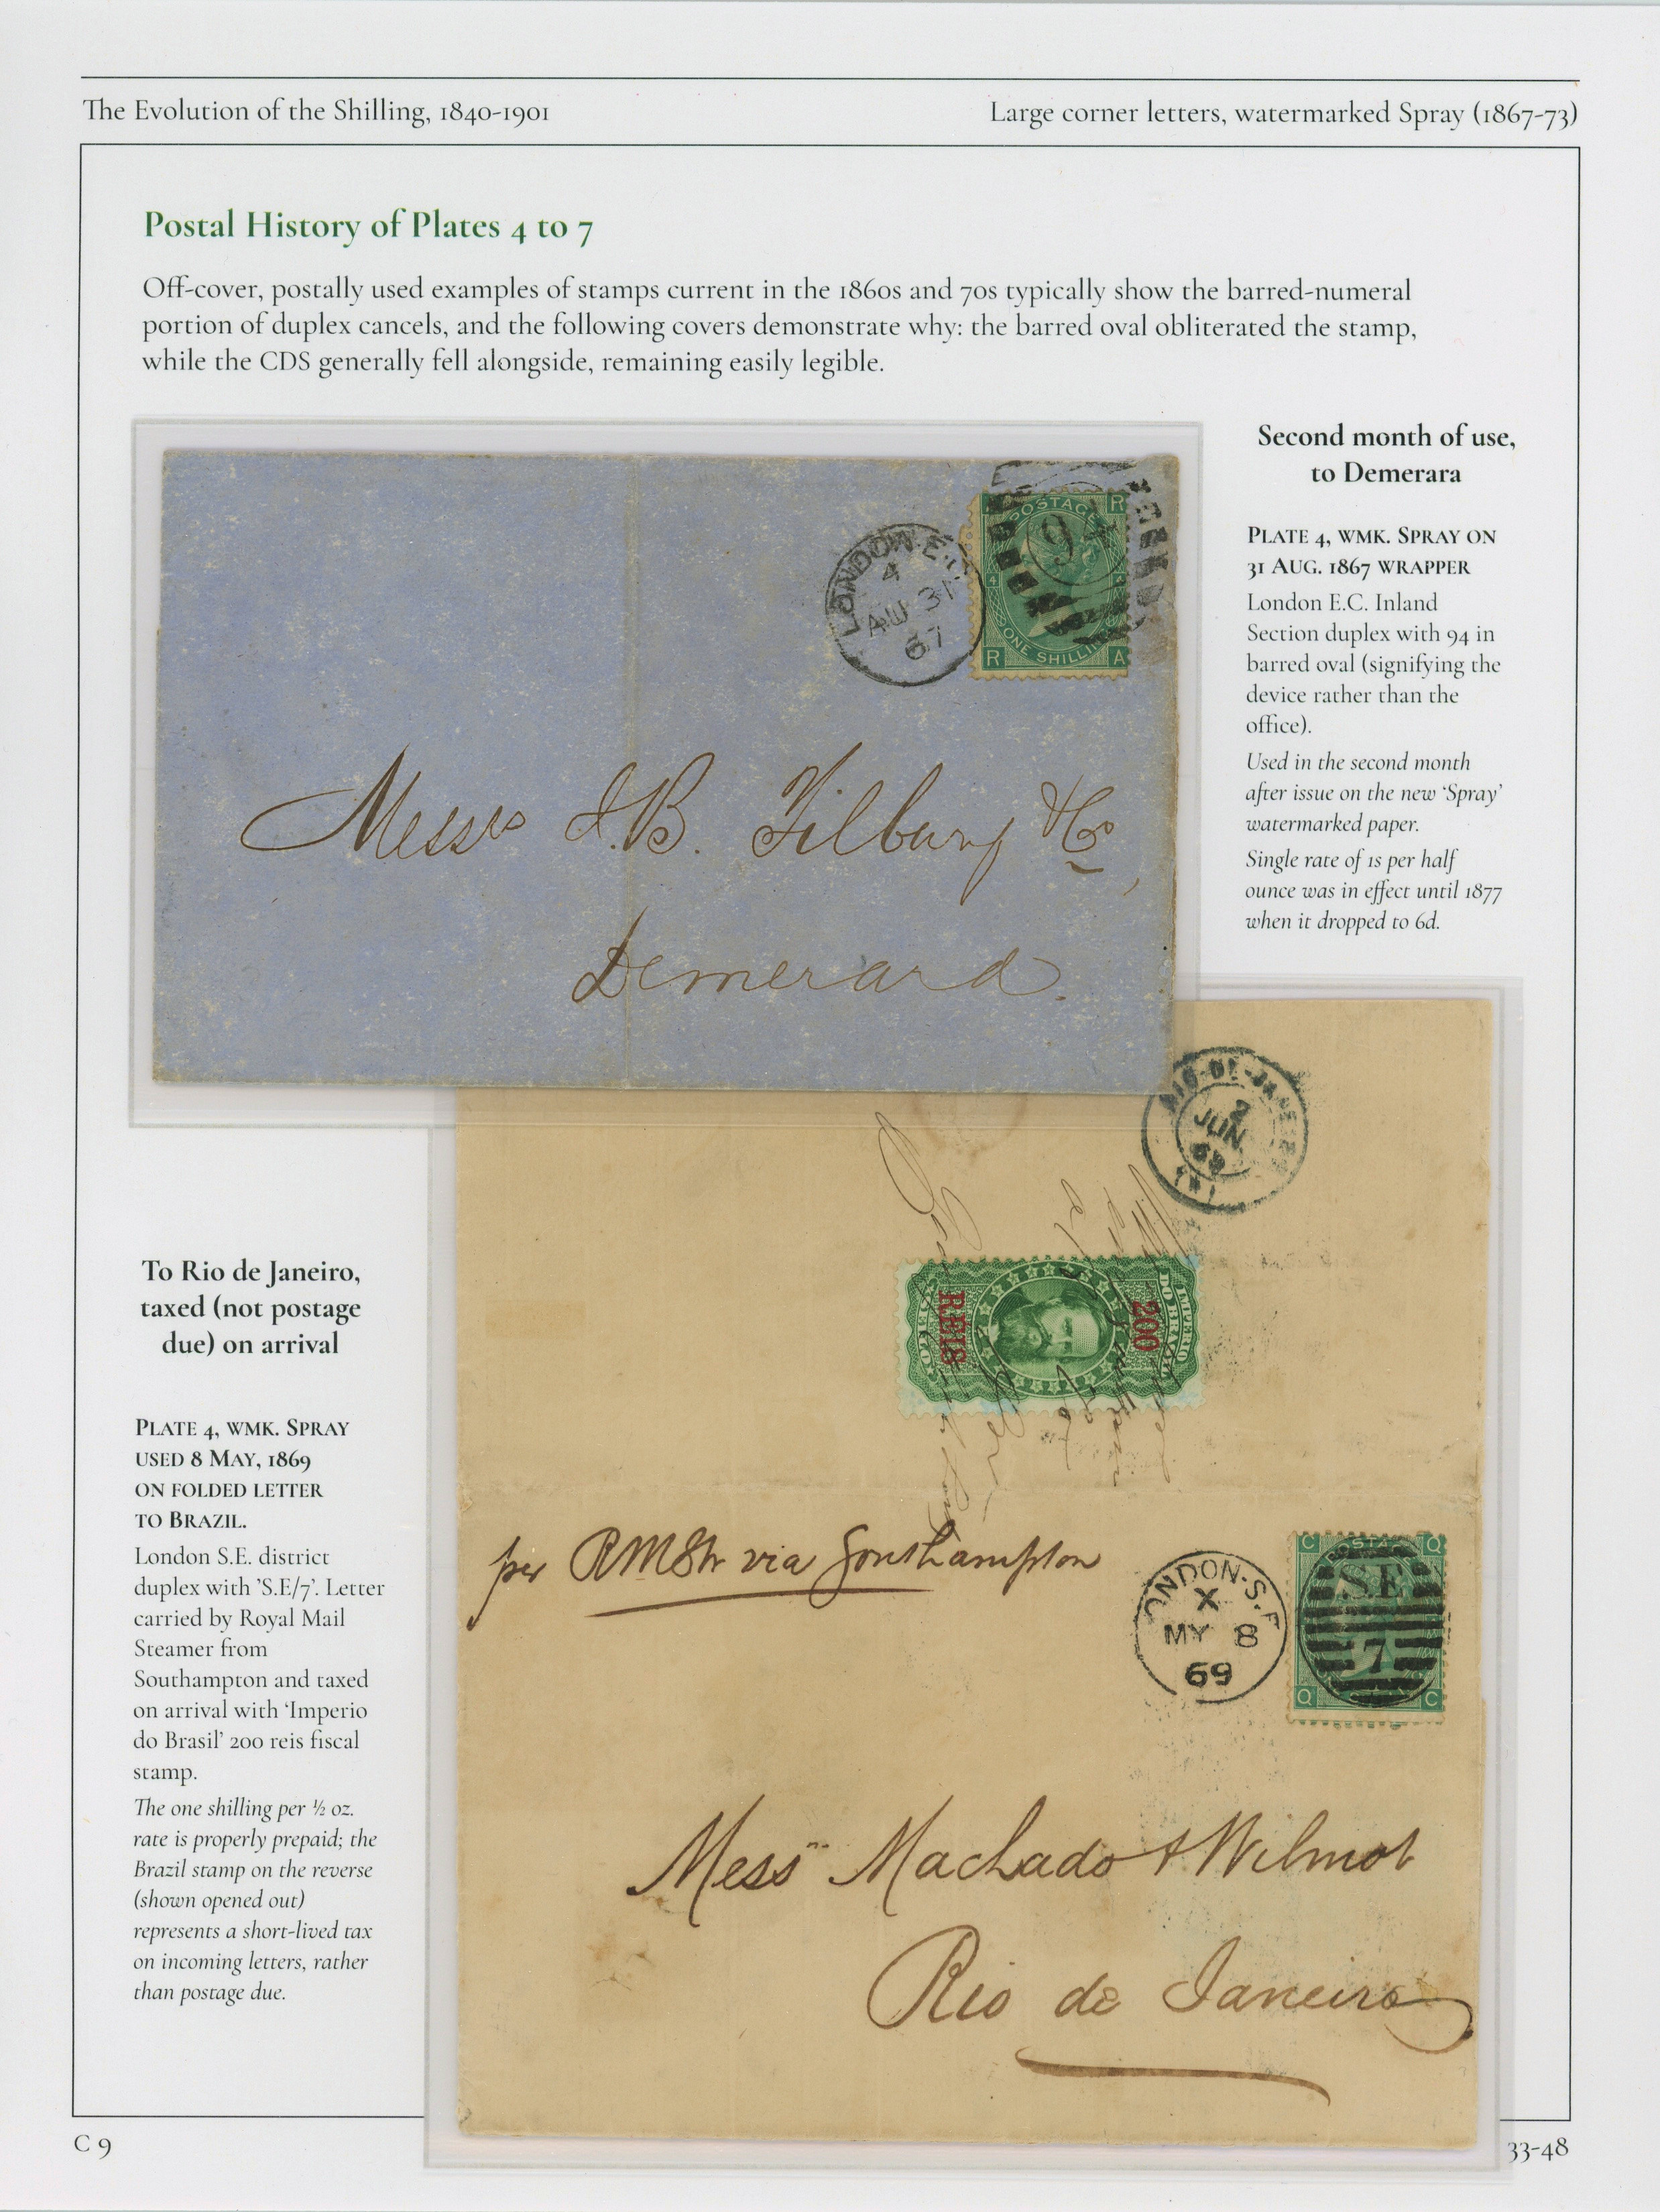 The Evolution of the Shilling, 1840-1901
Large corner letters, watermarked Spray (1867-73)
Postal History of Plates 4 to 7
Off-cover, postally used examples of stamps current in the 1860s and 70s typically show the barred-numeral
portion of duplex cancels, and the following covers demonstrate why: the barred oval obliterated the stamp,
while the CDS generally fell alongside, remaining easily legible.
Second month of use,
to Demerara
PLATE 4, WMK. SPRAY ON
31 AUG. 1867 WRAPPER
London E.C. Inland
Section duplex with 94 in
barred oval (signifying the
device rather than the
office).
Used in the second month
after issue on the new ‘Spray’
watermarked paper.
Single rate of 1s per half
ounce was in effect until 1877
when it dropped to 6d.
LONDON·E.C
4
AU 31
67
POSTAGE
R
94
4
ONE SHILLING
R A
Messrs J.B. Tilbury & Co,
Demerara.
RIO-DE-JANEIRO
2
JUN
69
IMPERIO
DO BRAZIL
200
REIS
To Rio de Janeiro,
taxed (not postage
due) on arrival
PLATE 4, WMK. SPRAY
USED 8 MAY, 1869
ON FOLDED LETTER
TO BRAZIL.
London S.E. district
duplex with ’S.E/7’. Letter
carried by Royal Mail
Steamer from
Southampton and taxed
on arrival with ‘Imperio
do Brasil’ 200 reis fiscal
stamp.
The one shilling per ½ oz.
rate is properly prepaid; the
Brazil stamp on the reverse
(shown opened out)
represents a short-lived tax
on incoming letters, rather
than postage due.
per RMStr via Southampton
LONDON·S.E
X
MY 8
69
C POSTAGE Q
S.E
7
Q C
Messrs Machado & Wilmot
Rio de Janeiro
C 9
33-48